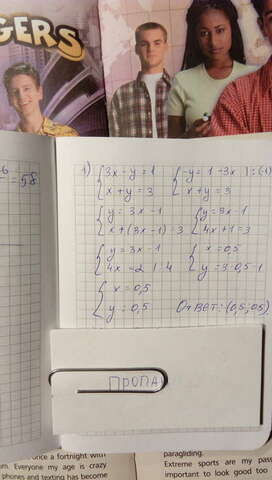 GERS
= 58
1) { 3x - y = 1 { -y = 1 - 3x | : (-1)
{ x + y = 3 { x + y = 3
{ y = 3x - 1 { y = 3x - 1
{ x + (3x - 1) = 3 { 4x + 1 = 3
{ y = 3x - 1 { x = 0,5
{ 4x = 2 | : 4 { y = 3 · 0,5 - 1
{ x = 0,5
{ y = 0,5 Ответ: (0,5; 0,5)
ПРОПА
once a fortnight with
m. Everyone my age is crazy
phones and texting has become
paragliding.
Extreme sports are my pass
important to look good too